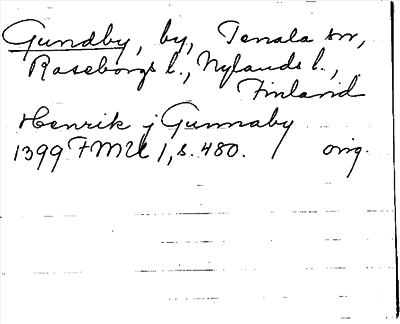 Gundby, by, Tenala sn,
Raseborgs l., Nylands l.,
Finland
Henrik j Gunnaby
1399 FMU 1, s. 480. orig.